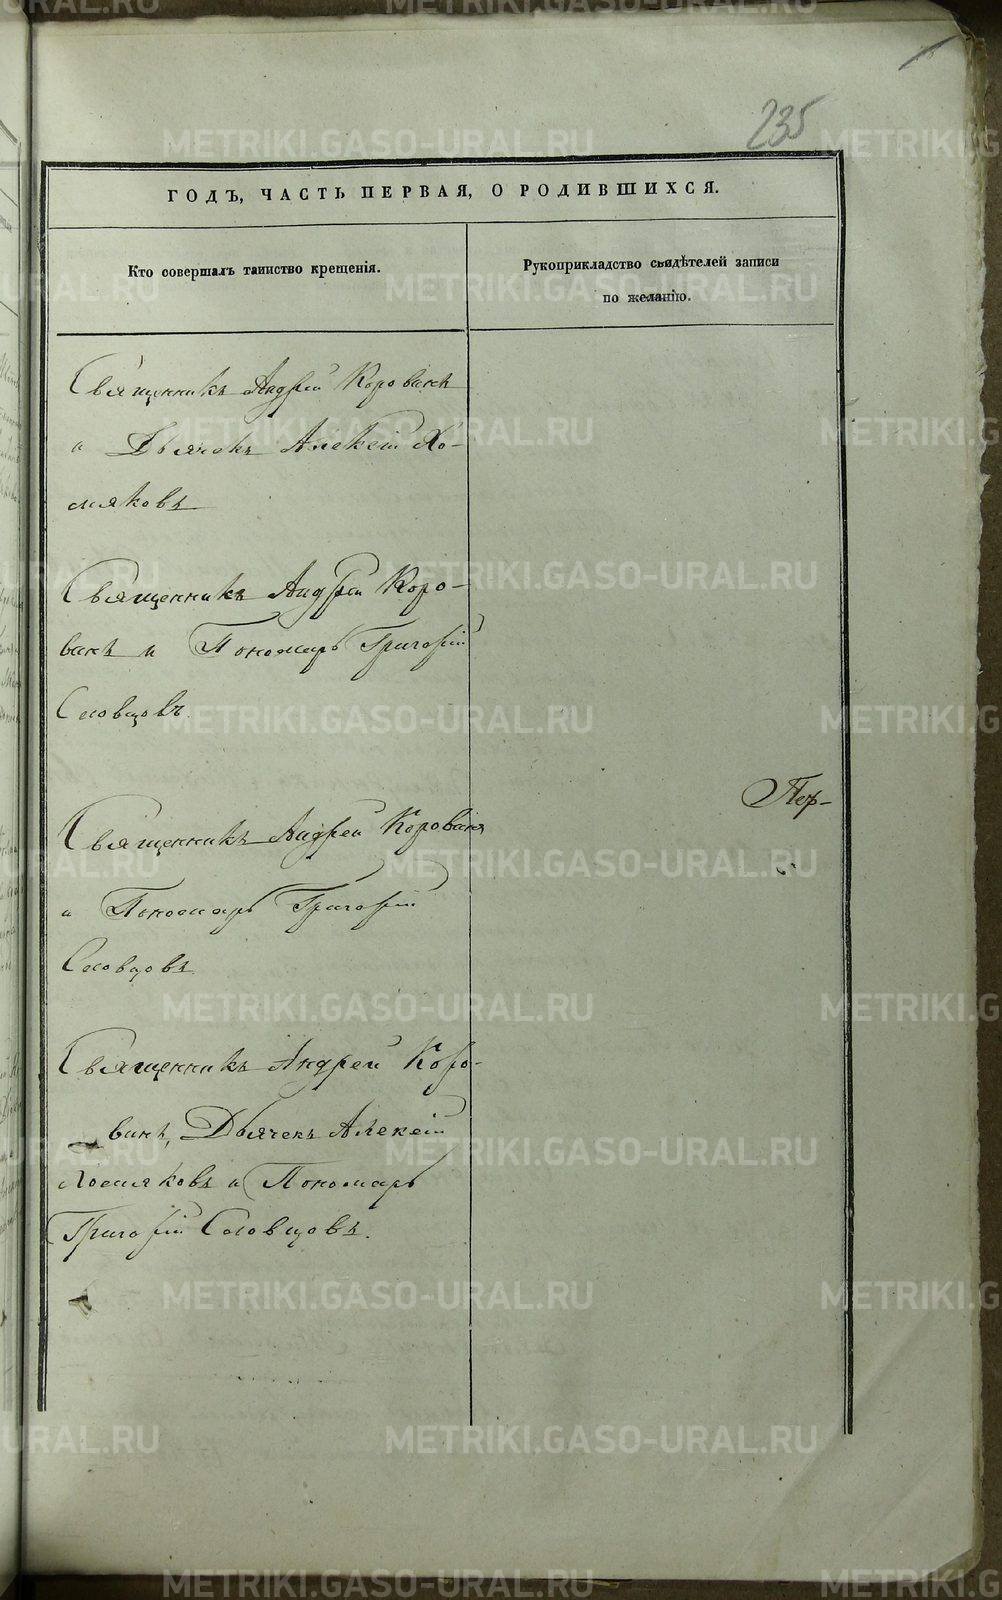 235
ГОДЪ, ЧАСТЬ ПЕРВАЯ, О РОДИВШИХСЯ.
Кто совершалъ таинство крещенія.
Рукоприкладство свидѣтелей записи
по желанію.
Священникъ Андрей Коровинъ
и Дьячекъ Алексій Хо-
мяковъ
Священникъ Андрей Коро-
винъ и Пономарь Григорій
Словцовъ
Пер-
Священникъ Андрей Коровинъ
и Пономарь Григорій
Словцовъ
Священникъ Андрей Коро-
винъ, Дьячекъ Алексій
Хомяковъ и Пономарь
Григорій Словцовъ.
METRIKI.GASO-URAL.RU